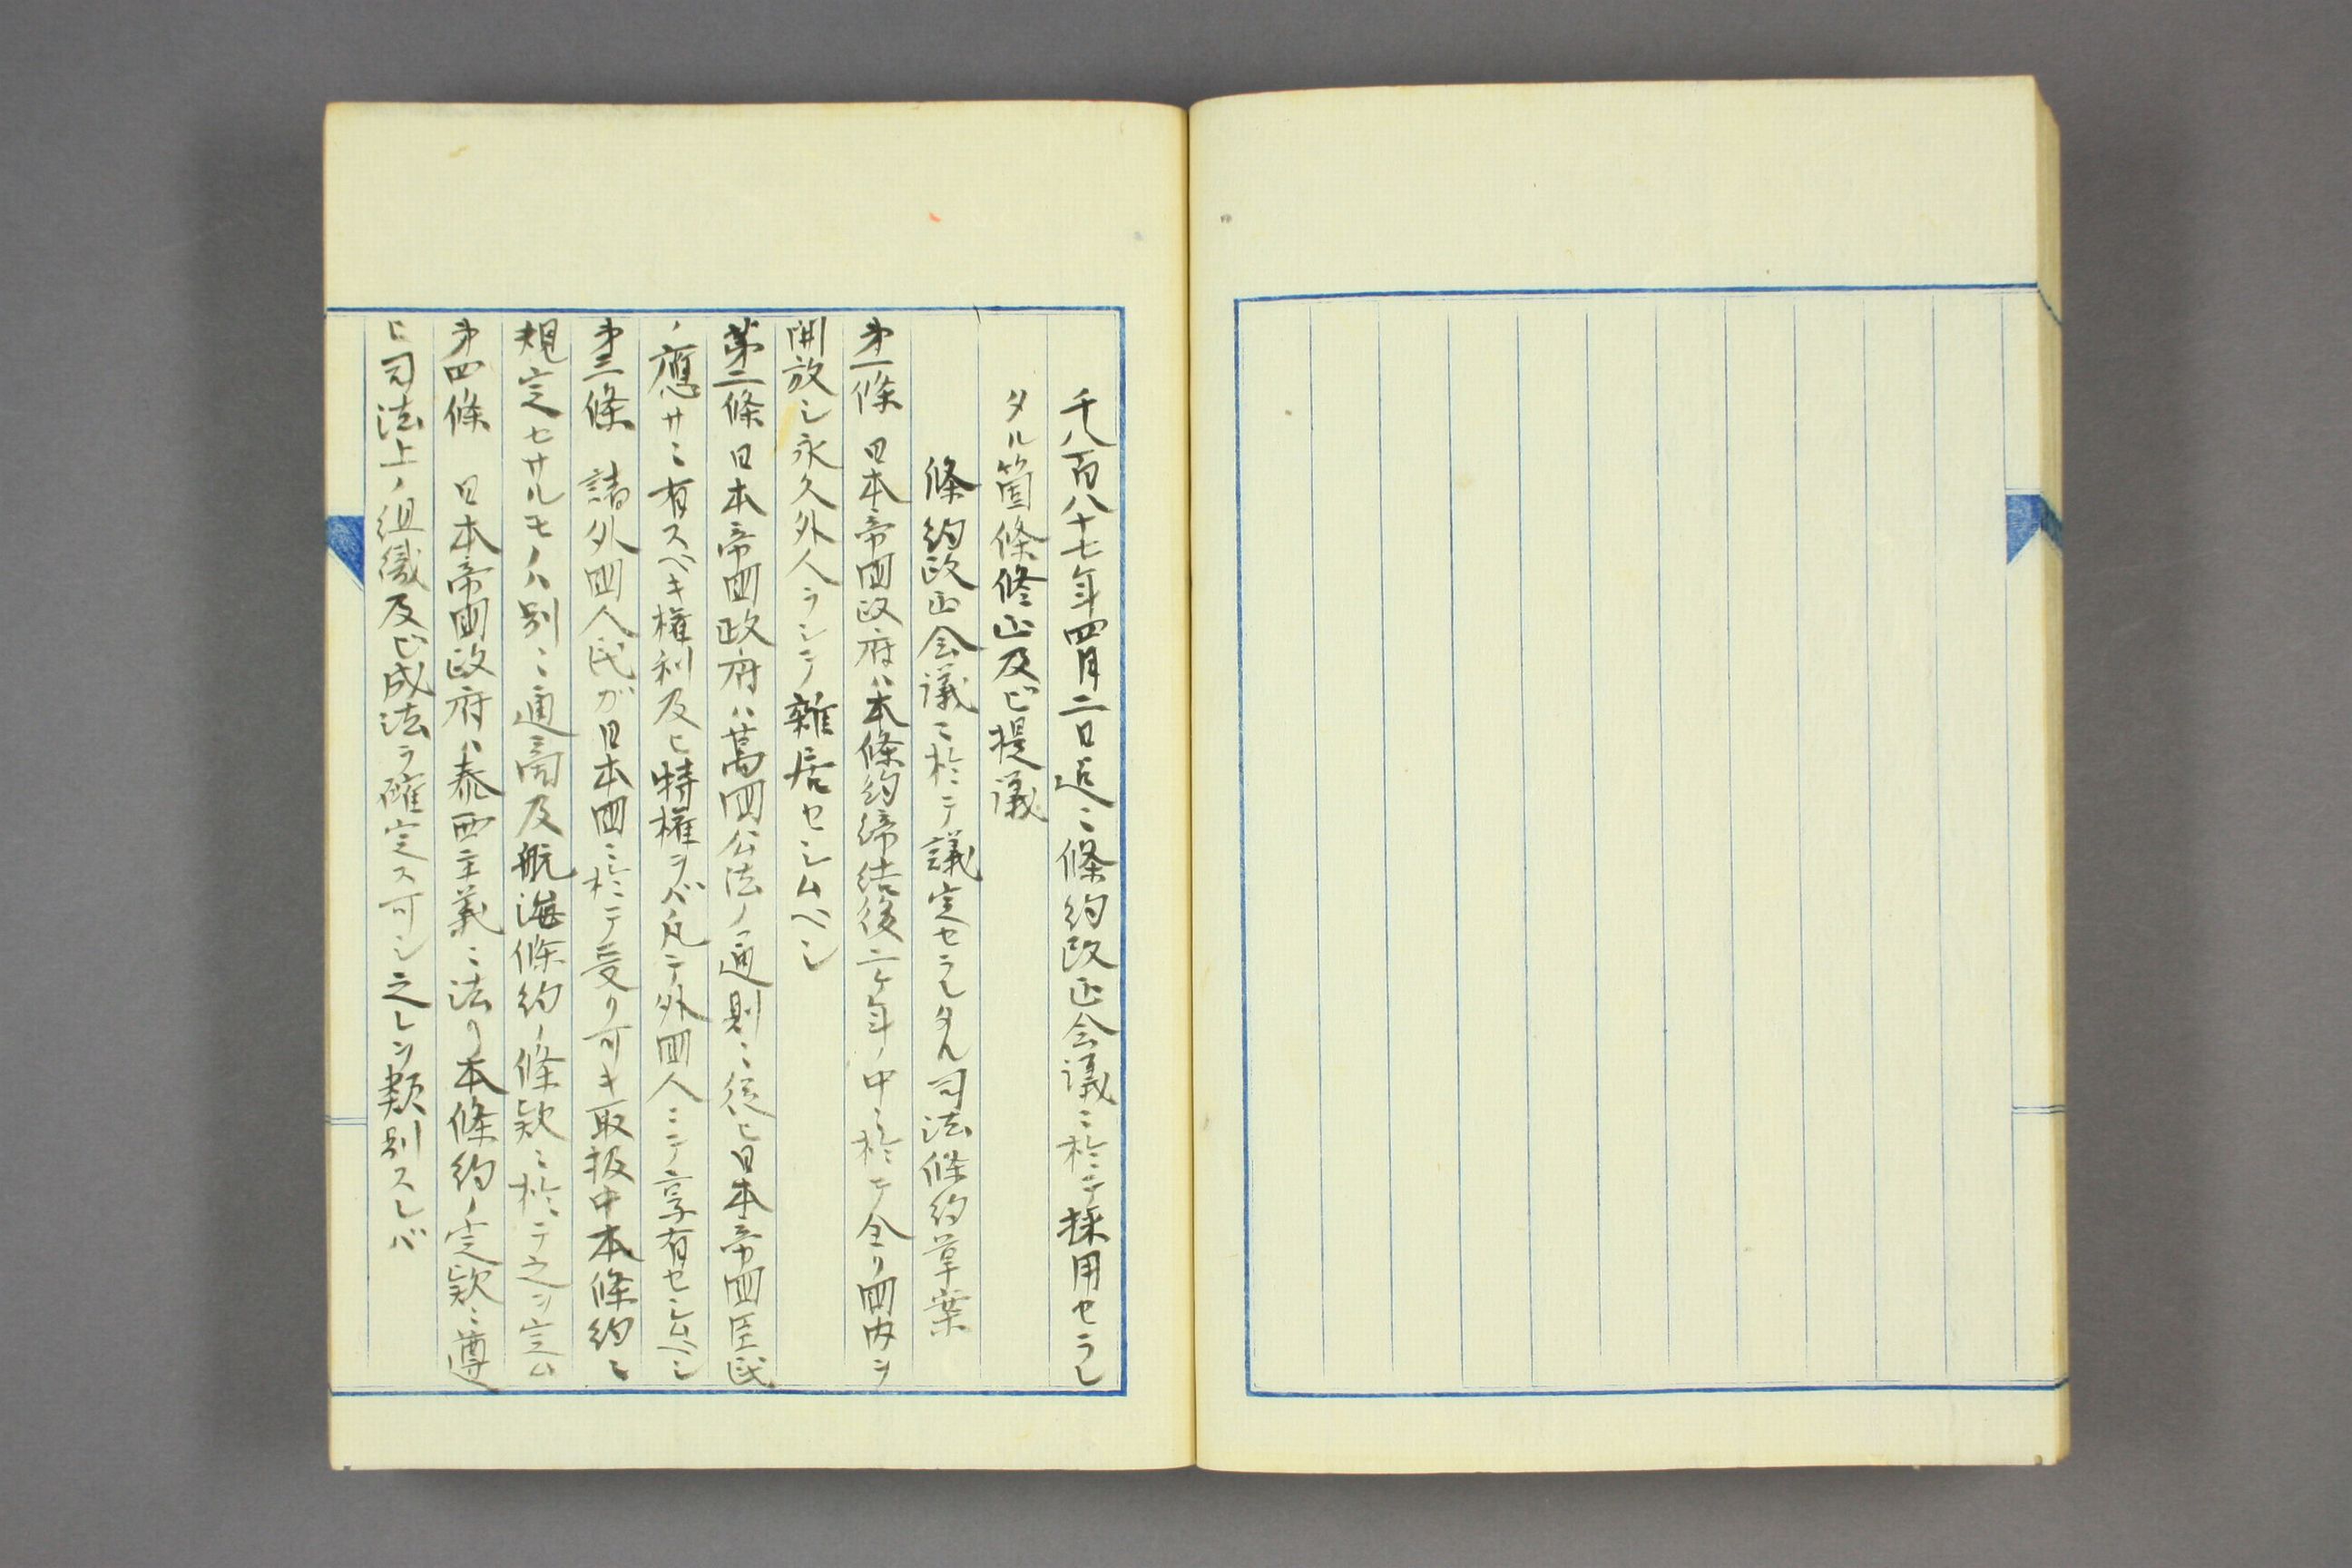 千八百八十七年四月二日迄ニ條約改正会議ニ於テ採用セラレ
タル箇條修正及ビ提議
條約改正会議ニ於テ議定セラレタル司法條約草案
第一條 日本帝国政府ハ本條約締結後二ケ年ノ中ニ於テ全ク国内ヲ
開放シ永久外人ヲシテ雜居セシムベシ
第二條 日本帝国政府ハ萬国公法ノ通則ニ従ヒ日本帝国臣民
ノ應サニ有スベキ權利及ヒ特權ヲバ凡テ外国人ニテ享有セシムベシ
第三條 諸外国人民ガ日本国ニ於テ受ク可キ取扱中本條約ニ
規定セサルモノハ別ニ通商及航海條約ノ條欵ニ於テ之ヲ定ム
第四條 日本帝国政府ハ泰西主義ニ法り本條約ノ定欵ニ遵
ヒ司法上ノ組織及ビ成法ヲ確定ス可シ之レヲ類別スレバ